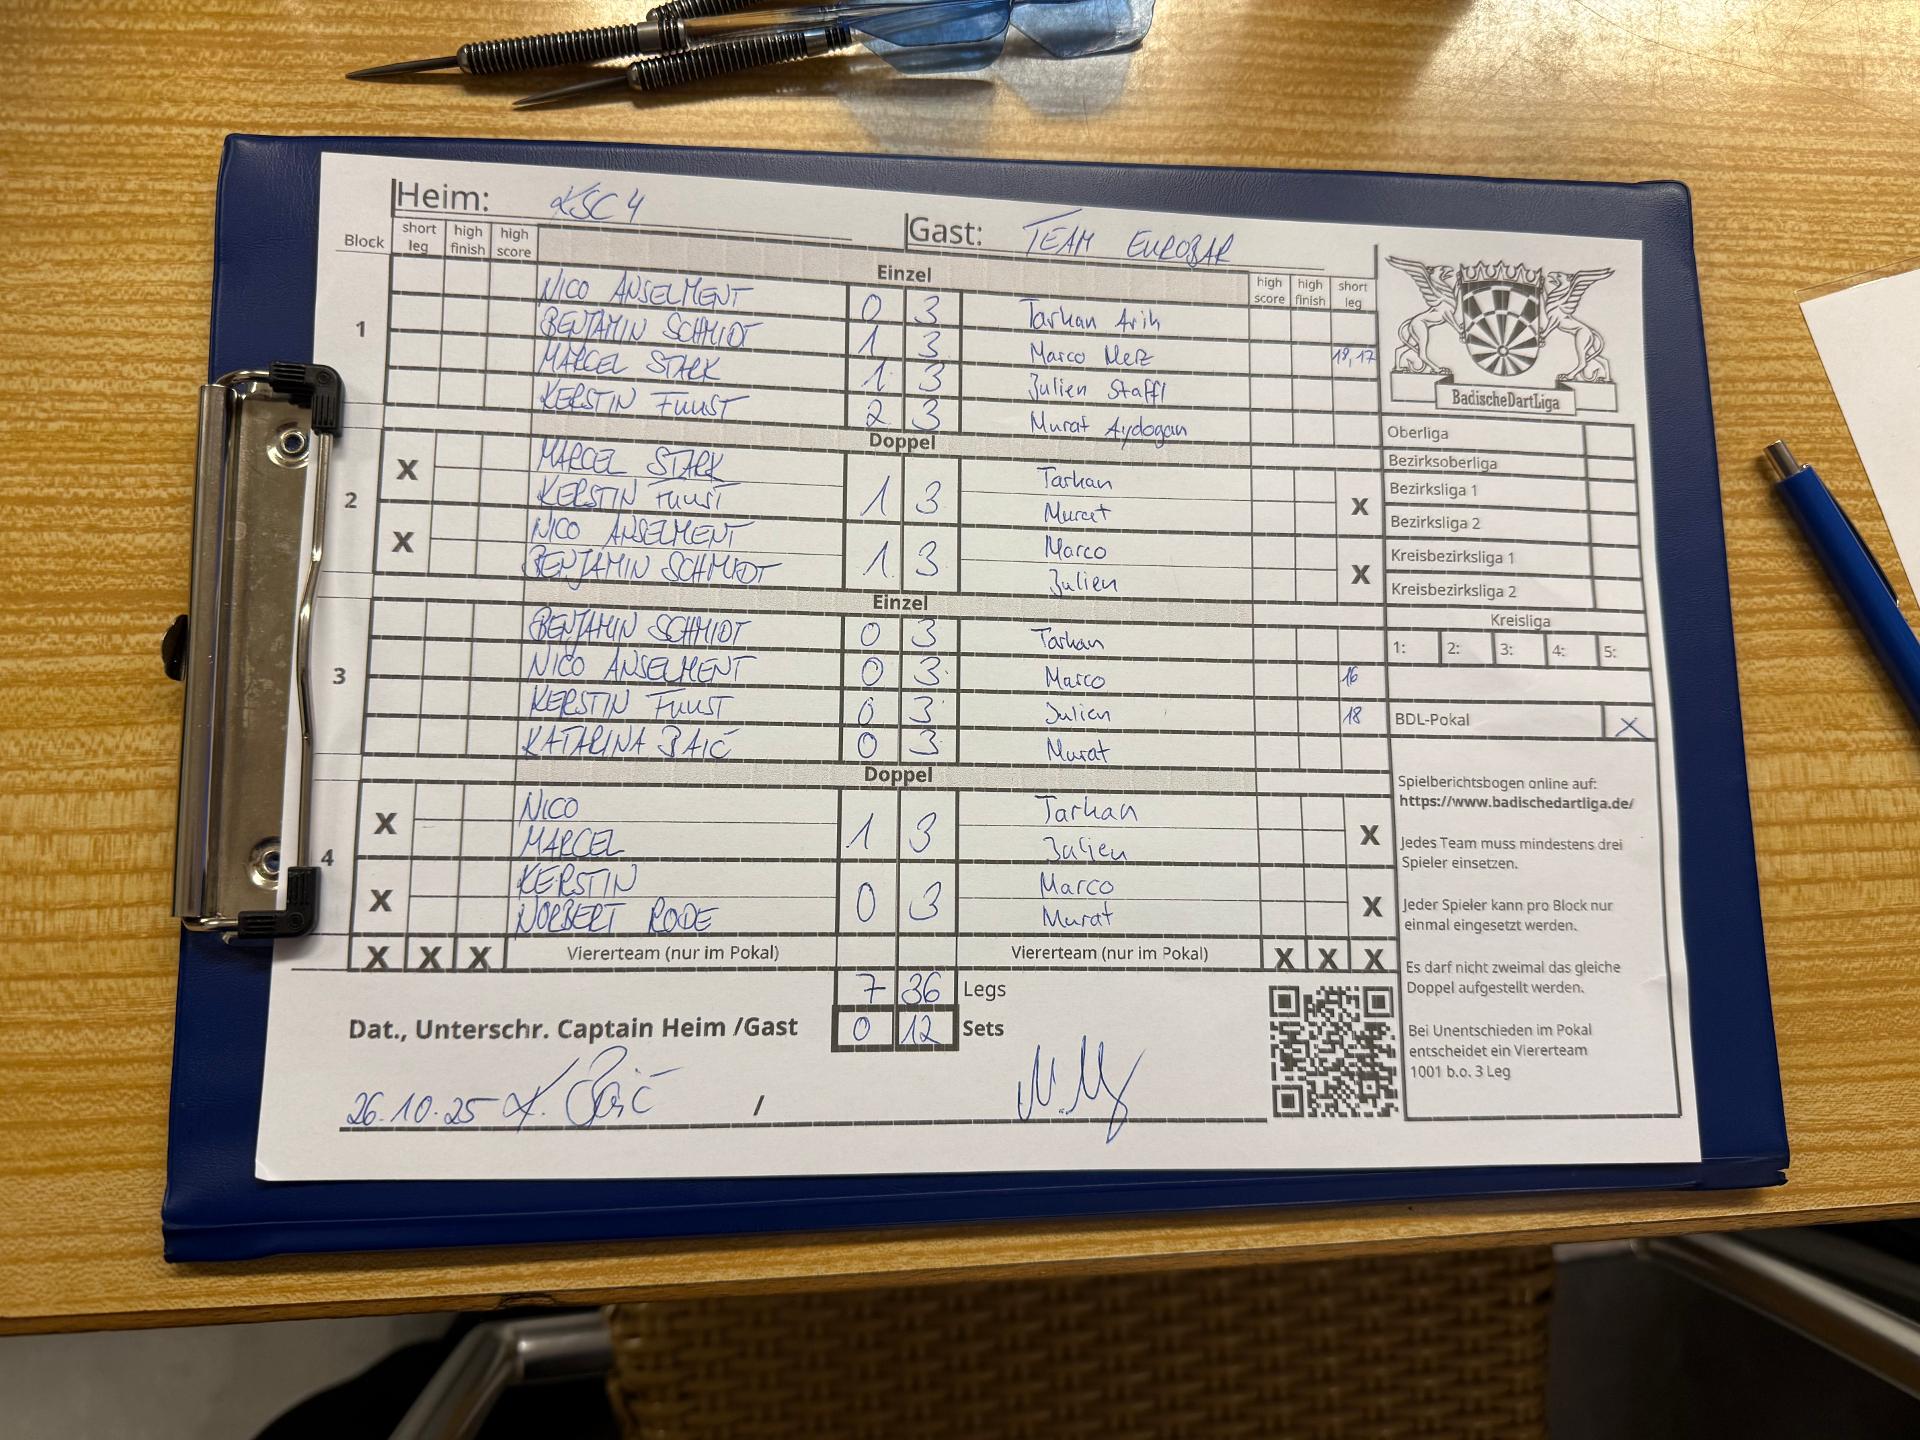 Heim: KSC 4 Gast: TEAM EUROBAR
Block short leg high finish high score Einzel high score high finish short leg
1
NICO ANSELMENT 0 3 Tarkan Arik
BENJAMIN SCHMIDT 1 3 Marco Metz 19, 17
MARCEL STARK 1 3 Julien Staffl
KERSTIN FUUST 2 3 Murat Aydogan
Doppel
2
X MARCEL STARK 1 3 Tarkan X
KERSTIN FUUST Murat
X NICO ANSELMENT 1 3 Marco X
BENJAMIN SCHMIDT Julien
Einzel
3
BENJAMIN SCHMIDT 0 3 Tarkan
NICO ANSELMENT 0 3 Marco 16
KERSTIN FUUST 0 3 Julien 18
KATARINA BAIĆ 0 3 Murat
Doppel
4
X NICO 1 3 Tarkan X
MARCEL Julien
X KERSTIN 0 3 Marco X
NORBERT RODE Murat
X X X Viererteam (nur im Pokal) Viererteam (nur im Pokal) X X X
7 36 Legs
Dat., Unterschr. Captain Heim /Gast 0 12 Sets
26.10.25 K. Baić /
BadischeDartLiga
Oberliga
Bezirksoberliga
Bezirksliga 1
Bezirksliga 2
Kreisbezirksliga 1
Kreisbezirksliga 2
Kreisliga
1: 2: 3: 4: 5:
BDL-Pokal X
Spielberichtsbogen online auf:
https://www.badischedartliga.de/
Jedes Team muss mindestens drei
Spieler einsetzen.
Jeder Spieler kann pro Block nur
einmal eingesetzt werden.
Es darf nicht zweimal das gleiche
Doppel aufgestellt werden.
Bei Unentschieden im Pokal
entscheidet ein Viererteam
1001 b.o. 3 Leg